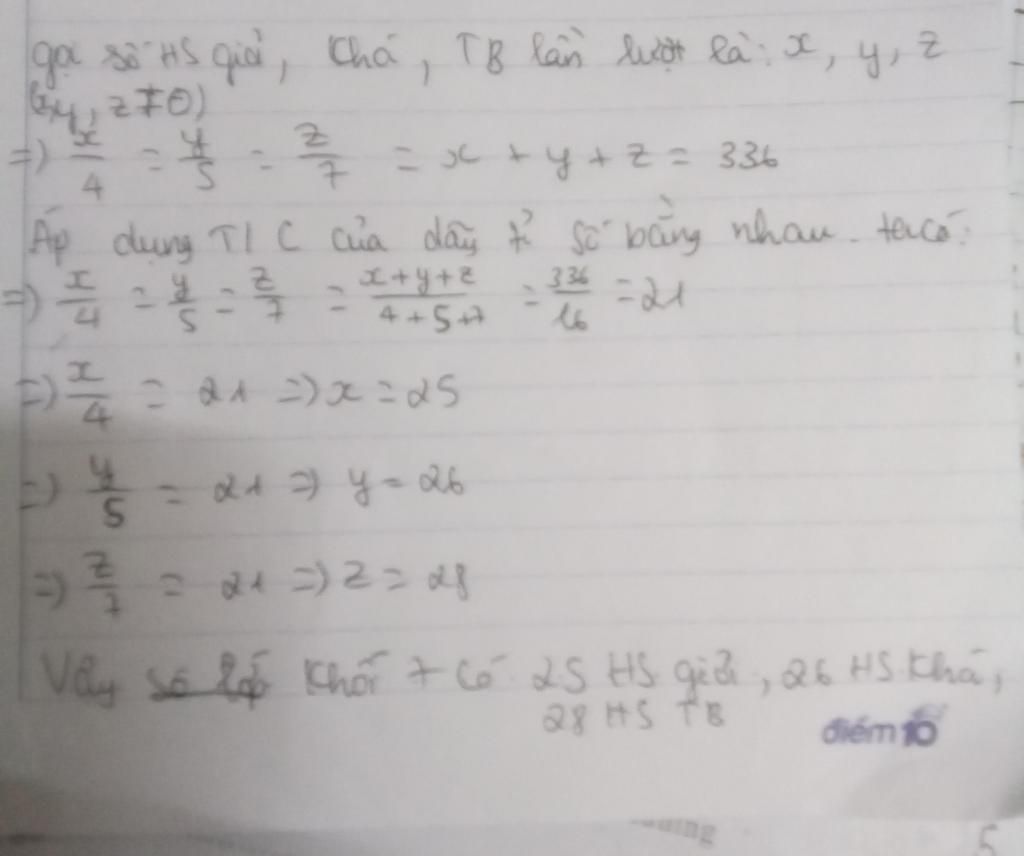 gọi số HS giỏi, Khá, TB lần lượt là: x, y, z
(x,y, z ≠ 0)
=) x/4 = y/5 = z/7 = x + y + z = 336
Áp dụng T/C của dãy tỉ số bằng nhau. ta có:
=) x/4 = y/5 = z/7 = x+y+z/4+5+7 = 336/16 = 21
=) x/4 = 21 =) x = 25
=) y/5 = 21 =) y = 26
=) z/7 = 21 =) z = 28
Vậy số lớp Khối 7 Có 25 HS giỏi, 26 HS Khá,
28 HS TB
điểm 10
5